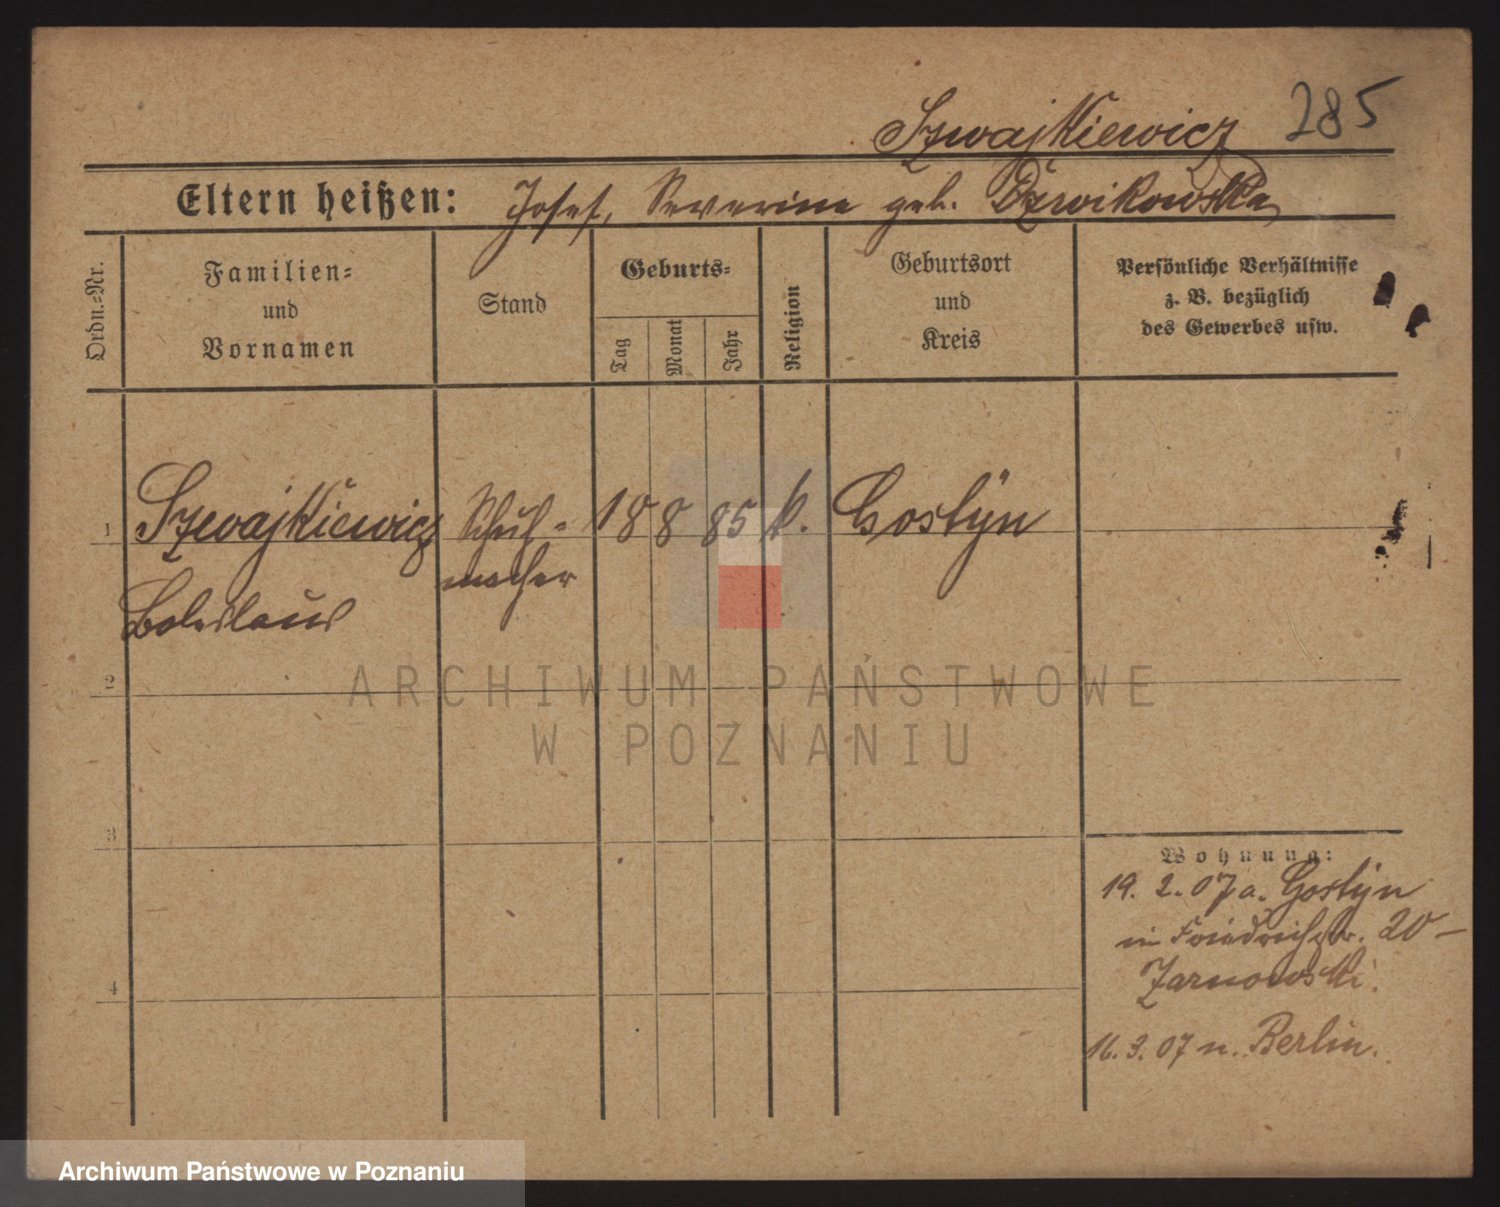 Szwajkiewicz 285
Eltern heißen: Josef, Severine geb. Dzwikowska
Ordn.-Nr.
Familien-
und
Vornamen
Stand
Geburts-
Tag
Monat
Jahr
Religion
Geburtsort
und
Kreis
Persönliche Verhältnisse
z. B. bezüglich
des Gewerbes usw.
1 Szwajkiewicz Schuh- 18 8 85 k. Gostyn
macher
Boleslaus
2
3
4
Wohnung:
19. 2. 07 a. Gostyn
in Friedrichstr. 20 –
Zarnowski.
16. 3. 07 n. Berlin.
ARCHIWUM PAŃSTWOWE
W POZNANIU
Archiwum Państwowe w Poznaniu